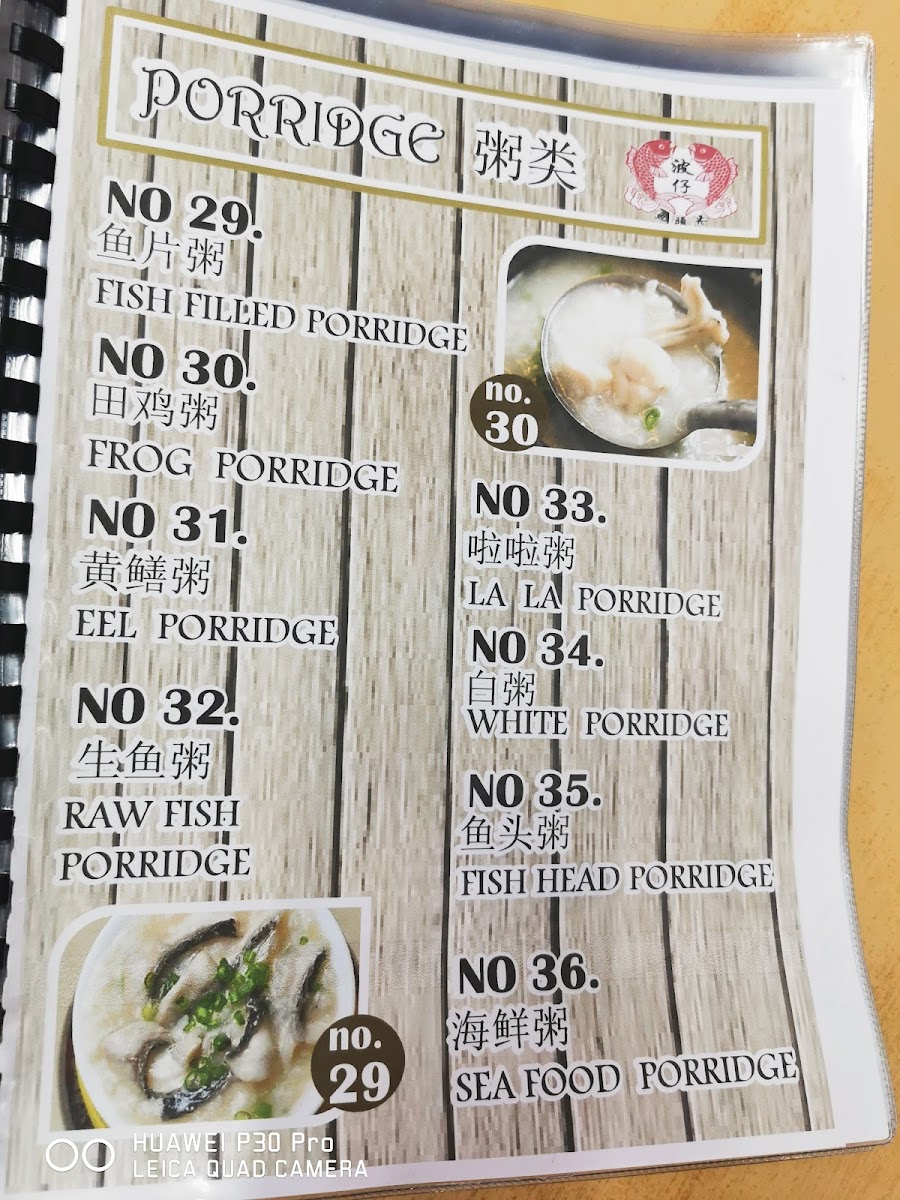 PORRIDGE 粥类
波
仔
NO 29.
鱼片粥
FISH FILLED PORRIDGE
NO 30.
田鸡粥
FROG PORRIDGE
NO 31.
黄鳝粥
EEL PORRIDGE
NO 32.
生鱼粥
RAW FISH
PORRIDGE
no.
29
no.
30
NO 33.
啦啦粥
LA LA PORRIDGE
NO 34.
白粥
WHITE PORRIDGE
NO 35.
鱼头粥
FISH HEAD PORRIDGE
NO 36.
海鲜粥
SEA FOOD PORRIDGE
HUAWEI P30 Pro
LEICA QUAD CAMERA